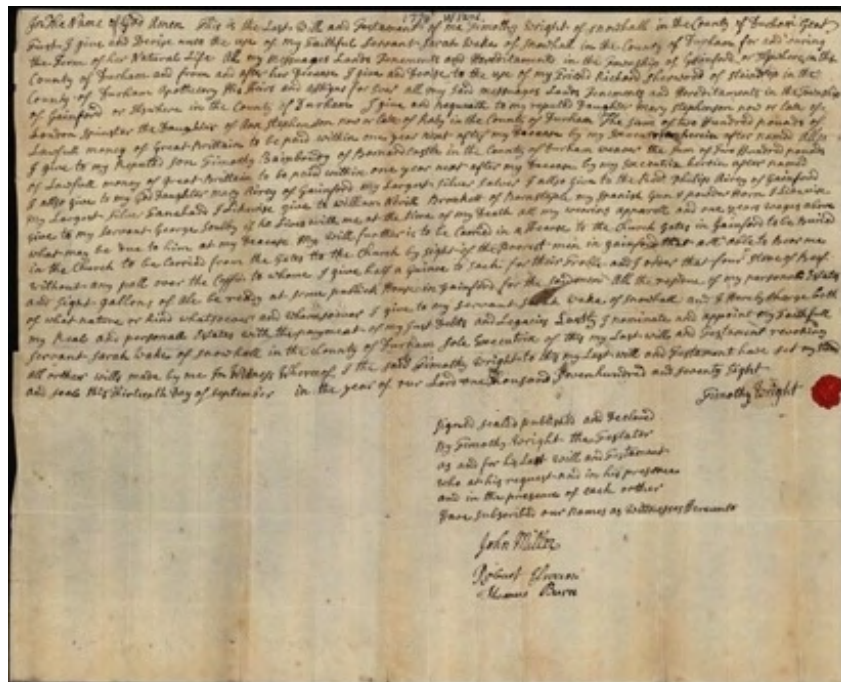 In The Name of God Amen This is the Last Will and Testament of me Timothy Wright of Snowhall in the County of Durham Gent.
First I give and Devise unto the use of my Faithful Servant Sarah Wake of Snowhall in the County of Durham for and during
the Term of her Natural Life All my Messuages Lands Tenements and Hereditaments in the Township of Gainford, or Elsewhere in the
County of Durham and from and after her Decease I give and Devise to the use of my Friend Richard Sherwood of Staindrop in the
County of Durham Apothecary His Heirs and assigns for Ever all my Said messuages Lands Tenements and Hereditaments in the Township
of Gainford or Elsewhere in the County of Durham I give and bequeath to my reputed Daughter Mary Stephenson now or late of
London Spinster the Daughter of Ann Stephenson now or late of Raby in the County of Durham The Sum of two Hundred pounds of
Lawfull money of Great Brittain to be paid within one year next after my Decease by my Executrix herein after named Also
I give to my Reputed Son Timothy of Barnardcastle in the County of Durham weaver the Sum of Two Hundred pounds
of Lawfull money of Great Brittain to be paid within one year next after my Decease by my Executrix herein after named
I allso give to my God Daughter Mary Airey of Gainford My Largest Silver Salver I allso give to the Revd. Philip Airey of Gainford
my Largest Silver I Likewise give to William Nevill Brockett of Barnstaple my Spanish Gun & powder Horn I Likewise
give to my Servant George Soulby if he Lives with me at the time of my Death all my wearing apparell and one years wages above
what may be due to him at my Decease My will further is to be Carried in a Hearse to the Church Gates in Gainford to be Buried
in the Church to be Carried from the Gates to the Church by Eight of the Poorest men in gainford that are able to Bear me
without any pall over the Coffin to whome I give half a Guinea to Each for their Troble and I order that four Stone of Beef
and Eight gallons of Ale be ready at some publick House in Gainford for the said men All the residue of my personall Estates
of what nature or kind whatsoever and whomsoever I give to my Servant Sarah Wake of Snowhall and I Hereby charge both
my Real and personall Estates with the payment of my Just Debts and Legacies Lastly I nominate and appoint my Faithfull
Servant Sarah Wake of Snowhall in the County of Durham Sole Executrix of this my Last will and Testament revoking
all orther wills made by me In Witness Whereof I the said Timothy Wright to this my Last will and Testament have set my Hand
and seale this Thirteenth Day of September in the year of our Lord one Thousand Sevenhundred and seventy Eight
Timothy Wright
Signed sealed published and Declared
By Timothy Wright the Testator
as and for his Last will and Testament
who at his request and in his presence
and in the presence of each orther
have subscribed our names as Witnesses Hereunto
John Miller
Robert
Thomas Burn